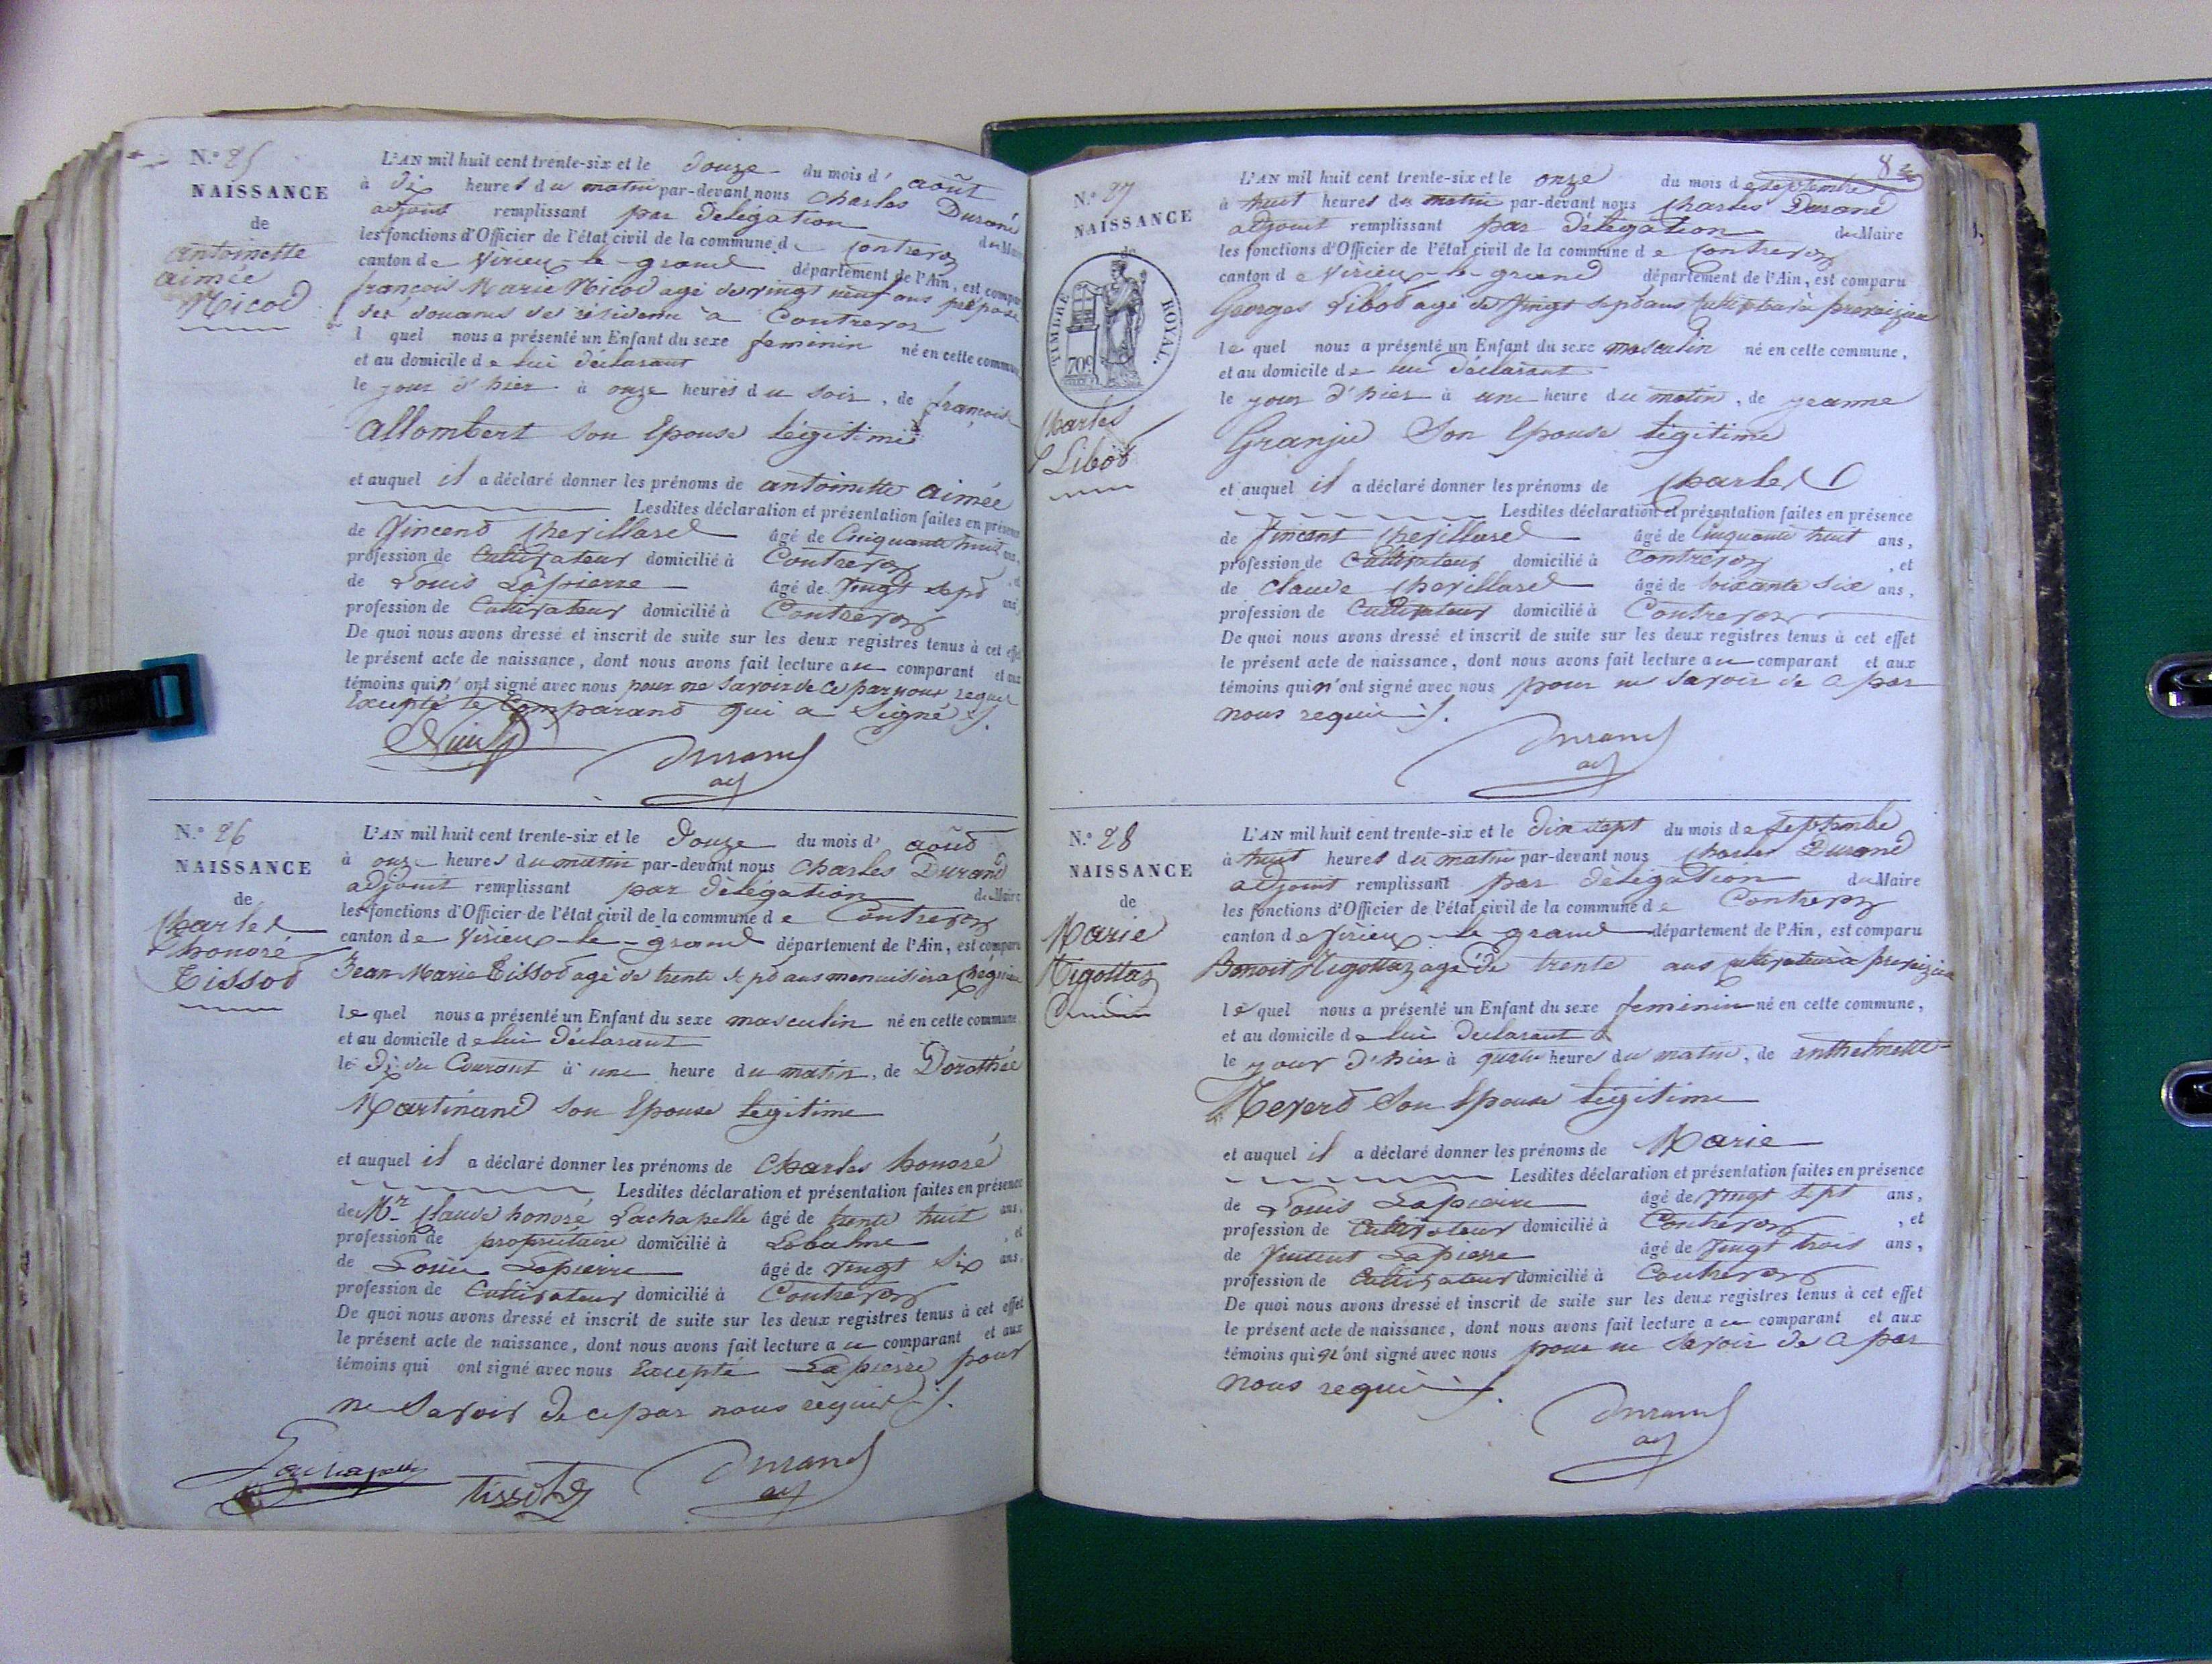 N.° 25
NAISSANCE
de
antoinette
aimée
Nicod
L'AN mil huit cent trente-six et le douze du mois d' août
à dix heures du matin par-devant nous Charles Durand
adjoint remplissant par délégation du Maire
les fonctions d'Officier de l'état civil de la commune de Contrevoz
canton de Virieu-le-grand département de l'Ain, est comparu
françois Marie Nicod agé de vingt neuf ans préposé
des douanes de résidence à Contrevoz
l quel nous a présenté un Enfant du sexe feminin né en cette commune
et au domicile de lui déclarant
le jour d'hier à onze heures du soir, de françoise
allombert son Epouse légitime
et auquel il a déclaré donner les prénoms de antoinette aimée
Lesdites déclaration et présentation faites en présence
de Vincend Chevillard âgé de Cinquante huit ans,
profession de Cultivateur domicilié à Contrevoz, et
de Louis Lapierre âgé de vingt sept ans,
profession de Cultivateur domicilié à Contrevoz
De quoi nous avons dressé et inscrit de suite sur les deux registres tenus à cet effet
le présent acte de naissance, dont nous avons fait lecture au comparant et aux
témoins qui n'ont signé avec nous pour ne savoir de ce par nous requis
Excepté le Comparand qui a Signé
Durand
adj
N.° 26
NAISSANCE
de
Charles
honoré
Tissod
L'AN mil huit cent trente-six et le douze du mois d' aoûd
à onze heures du matin par-devant nous Charles Durand
adjoint remplissant par délégation du Maire
les fonctions d'Officier de l'état civil de la commune de Contrevoz
canton de Virieu-le-grand département de l'Ain, est comparu
Jean Marie Tissod agé de trente sept ans menuisier à
le quel nous a présenté un Enfant du sexe masculin né en cette commune
et au domicile de lui déclarant
le dix du Courant à une heure du matin, de Dorothée
Martinand son Epouse légitime
et auquel il a déclaré donner les prénoms de Charles honoré
Lesdites déclaration et présentation faites en présence
de Mr Claude honoré Lachapelle âgé de trente huit ans,
profession de propriétaire domicilié à Labalme, et
de Louis Lapierre âgé de vingt six ans,
profession de Cultivateur domicilié à Contrevoz
De quoi nous avons dressé et inscrit de suite sur les deux registres tenus à cet effet
le présent acte de naissance, dont nous avons fait lecture au comparant et aux
témoins qui ont signé avec nous Excepté Lapierre pour
ne Savoir de ce par nous requis
Lachapelle Tissot Durand
adj
83
N.° 27
NAISSANCE
de
TIMBRE ROYAL.
70c
Charles
Libod
L'AN mil huit cent trente-six et le onze du mois de septembre
à huit heures du matin par-devant nous Charles Durand
adjoint remplissant par délégation du Maire
les fonctions d'Officier de l'état civil de la commune de Contrevoz
canton de Virieu-le-grand département de l'Ain, est comparu
Georges Libod agé de vingt sept ans Cultivateur à preveizieu
le quel nous a présenté un Enfant du sexe masculin né en cette commune,
et au domicile de lui déclarant
le jour d'hier à une heure du matin, de jeanne
Granju Son Epouse légitime
et auquel il a déclaré donner les prénoms de Charles
Lesdites déclaration et présentation faites en présence
de Vincent Chevillard âgé de Cinquante huit ans,
profession de Cultivateur domicilié à Contrevoz, et
de Claude Chevillard âgé de soixante six ans,
profession de Cultivateur domicilié à Contrevoz
De quoi nous avons dressé et inscrit de suite sur les deux registres tenus à cet effet
le présent acte de naissance, dont nous avons fait lecture au comparant et aux
témoins qui n'ont signé avec nous pour ne Savoir de ce par
nous requis
Durand
adj
N.° 28
NAISSANCE
de
Marie
Migottaz
L'AN mil huit cent trente-six et le dix sept du mois de Septembre
à huit heures du matin par-devant nous Charles Durand
adjoint remplissant par délégation du Maire
les fonctions d'Officier de l'état civil de la commune de Contrevoz
canton de Virieu-le-grand département de l'Ain, est comparu
Benoit Migottaz agé de trente ans Cultivateur à preveizieu
le quel nous a présenté un Enfant du sexe feminin né en cette commune,
et au domicile de lui déclarant
le jour d'hier à quatre heures du matin, de anthelmette
Meyerd Son Epouse légitime
et auquel il a déclaré donner les prénoms de Marie
Lesdites déclaration et présentation faites en présence
de Louis Lapierre âgé de vingt sept ans,
profession de Cultivateur domicilié à Contrevoz, et
de Vincent Lapierre âgé de vingt trois ans,
profession de Cultivateur domicilié à Contrevoz
De quoi nous avons dressé et inscrit de suite sur les deux registres tenus à cet effet
le présent acte de naissance, dont nous avons fait lecture au comparant et aux
témoins qui n'ont signé avec nous pour ne Savoir de ce par
nous requis
Durand
adj